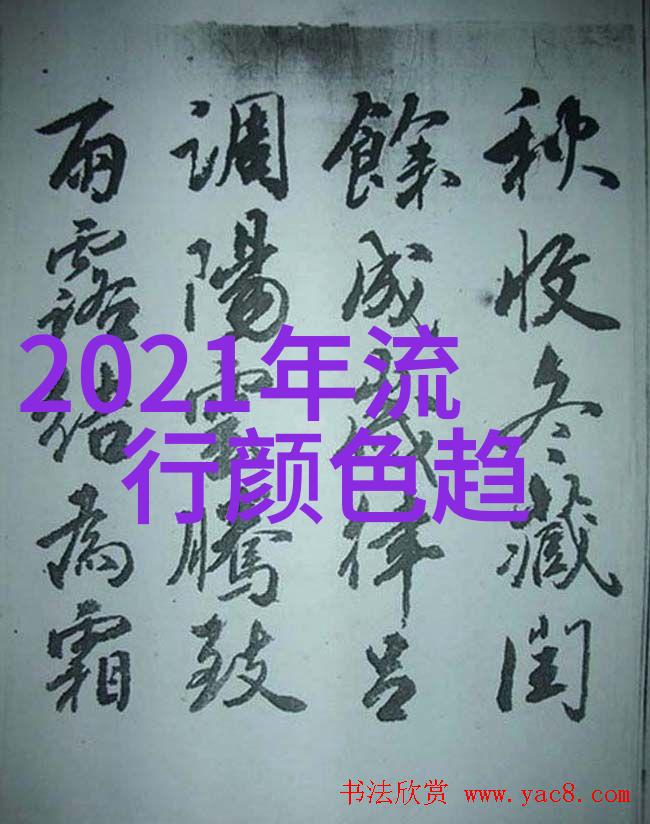 秋收冬藏閏
餘成歲律呂
調陽雲騰致
雨露結為霜
2021年流
行颜色趋
书法欣赏 www.yac8.com